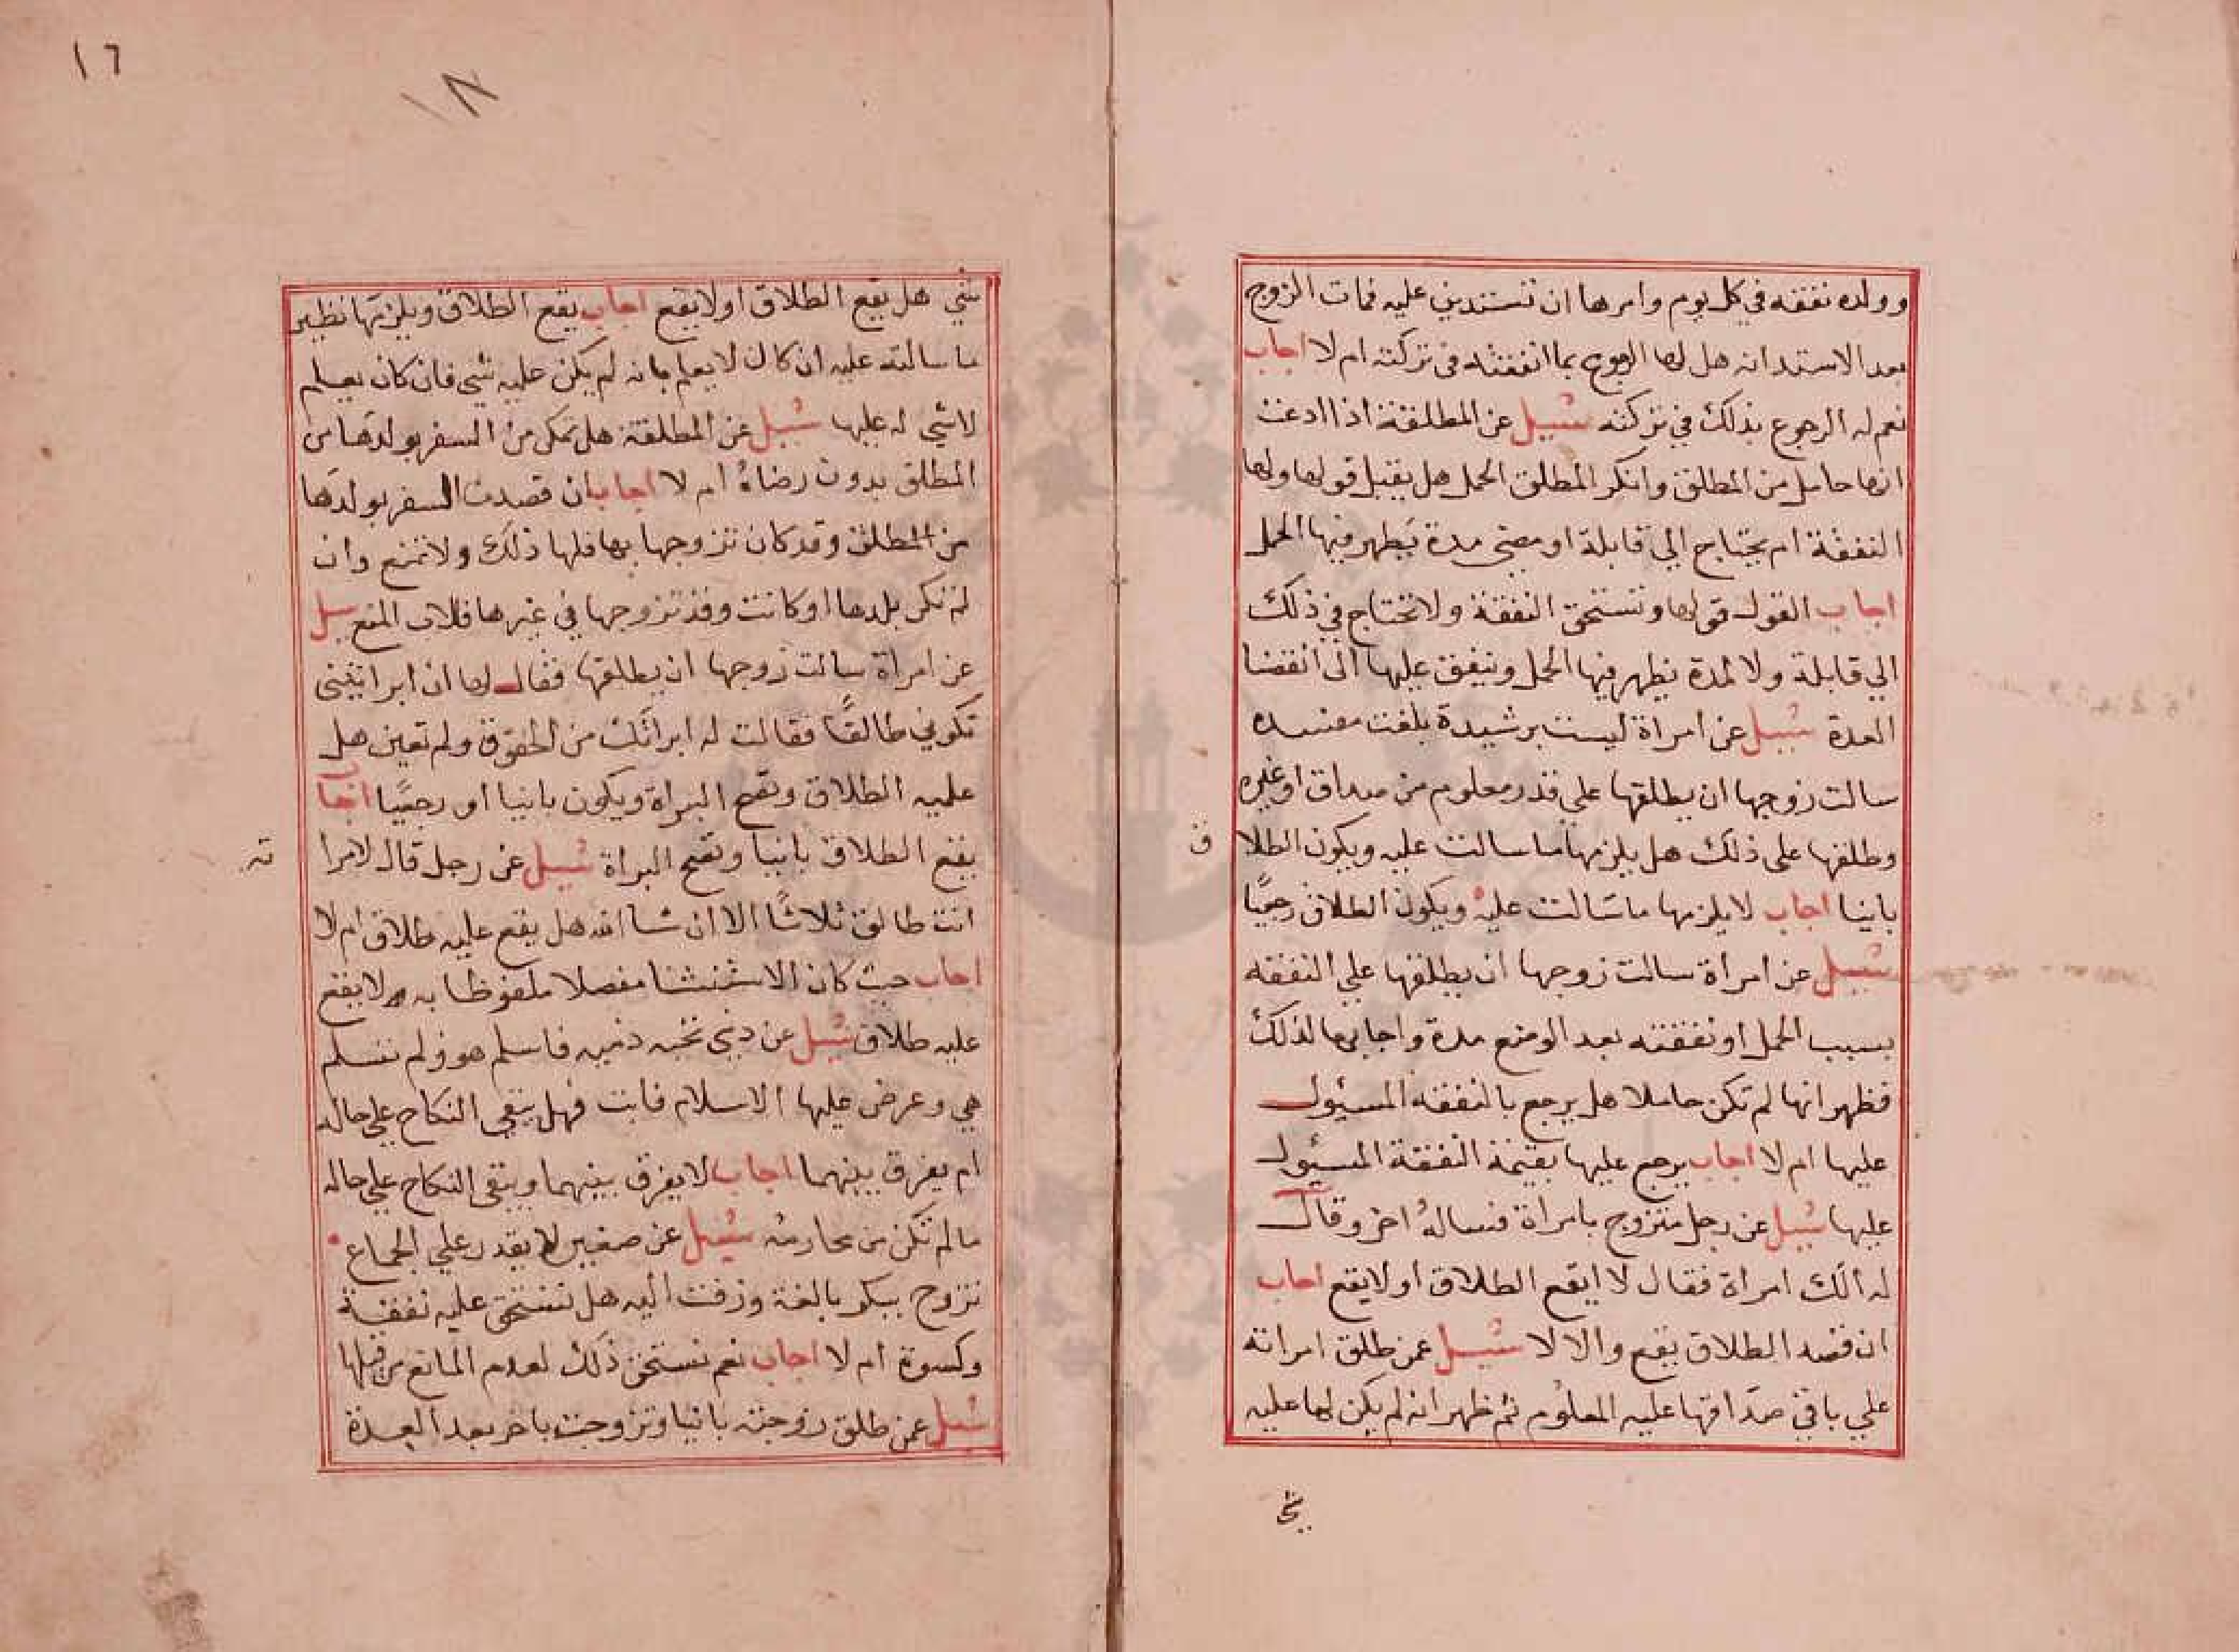 وولده نفقه في كل يوم وامرها ان تستدين عليه فمات الزوج
بعد الاستدانه هل لها الرجوع بما انفقته في تركته ام لا اجاب
نعم له الرجوع بذلك في تركته سئيل عن المطلقة اذا ادعت
انها حامل من المطلق وانكر المطلق الحمل هل يقبل قولها ولها
النفقة ام يحتاج الي قابلة او مضى مدة يظهر فيها الحمل
اجاب القول قولها وتستحق النفقة ولا تحتاج في ذلك
الي قابلة ولا لمدة يظهر فيها الحمل وينفق عليها الى انقضا
العدة سئيل عن امراة ليست برشيدة بلغت مفسده
سالت زوجها ان يطلقها على قدر معلوم من صداق او غيره
وطلقها على ذلك هل يلزمها ما سالت عليه ويكون الطلا
ق
باينا اجاب لا يلزمها ما سالت عليه ويكون الطلاق رجعيًا
سئيل عن امراة سالت زوجها ان يطلقها علي النفقه
بسبب الحمل او نفقته بعد الوضع مدة واجابها لذلك
فظهر انها لم تكن حاملا هل يرجع بالنفقه المسيول
عليها ام لا اجاب يرجع عليها بقيمة النفقة المسيول
عليها سئيل عن رجل متزوج بامراة فساله اخر وقال
له الك امراة فقال لا ايقع الطلاق او لا يقع اجاب
ان قصد الطلاق يقع والا لا سئيل عمن طلق امراته
علي باقي صداقها عليه المعلوم ثم ظهر انه لم يكن لها عليه
شي
١٦
١٨
شي هل يقع الطلاق او لا يقع اجاب يقع الطلاق ويلزمها نظير
ما سالته عليه ان كان لا يعلم بانه لم يكن عليه شي فان كان يعلم
لا شي له عليها سئيل عن المطلقة هل تمكن من السفر بولدها من
المطلق بدون رضاه ام لا اجاب ان قصدت السفر بولدها
من المطلق وقد كان تزوجها بها فلها ذلك ولا تمنع وان
لم تكن بلدها او كانت وقد تزوجها في غيرها فلاب المنع سيل
عن امراة سالت زوجها ان يطلقها فقال لها ان ابراتيني
تكوني طالقًا فقالت له ابراتك من الحقوق ولم تعين هل
عليه الطلاق وتصح البراة ويكون باينا او رجعيًا اجاب
يقع الطلاق باينا وتصح البراة سئيل عن رجل قال لامرا
ته
انت طالق ثلاثًا الا ان شا الله هل يقع عليه طلاق ام لا
اجاب حيث كان الاستثنا مفصلا ملفوظا به لا يقع
عليه طلاق سئيل عن ذمي تحته ذميه فاسلم هو ولم تسلم
هي وعرض عليها الاسلام فابت فهل يبقي النكاح علي حاله
ام يفرق بينهما اجاب لا يفرق بينهما ويبقى النكاح علي حاله
ما لم تكن من محارمه سئيل عن صغير لا يقدر علي الجماع
تزوج ببكر بالغة وزفت اليه هل تستحق عليه نفقة
وكسوة ام لا اجاب نعم تستحق ذلك لعدم المانع من قبلها
سئيل عمن طلق زوجته باينا وتزوجت باخر بعد العدة